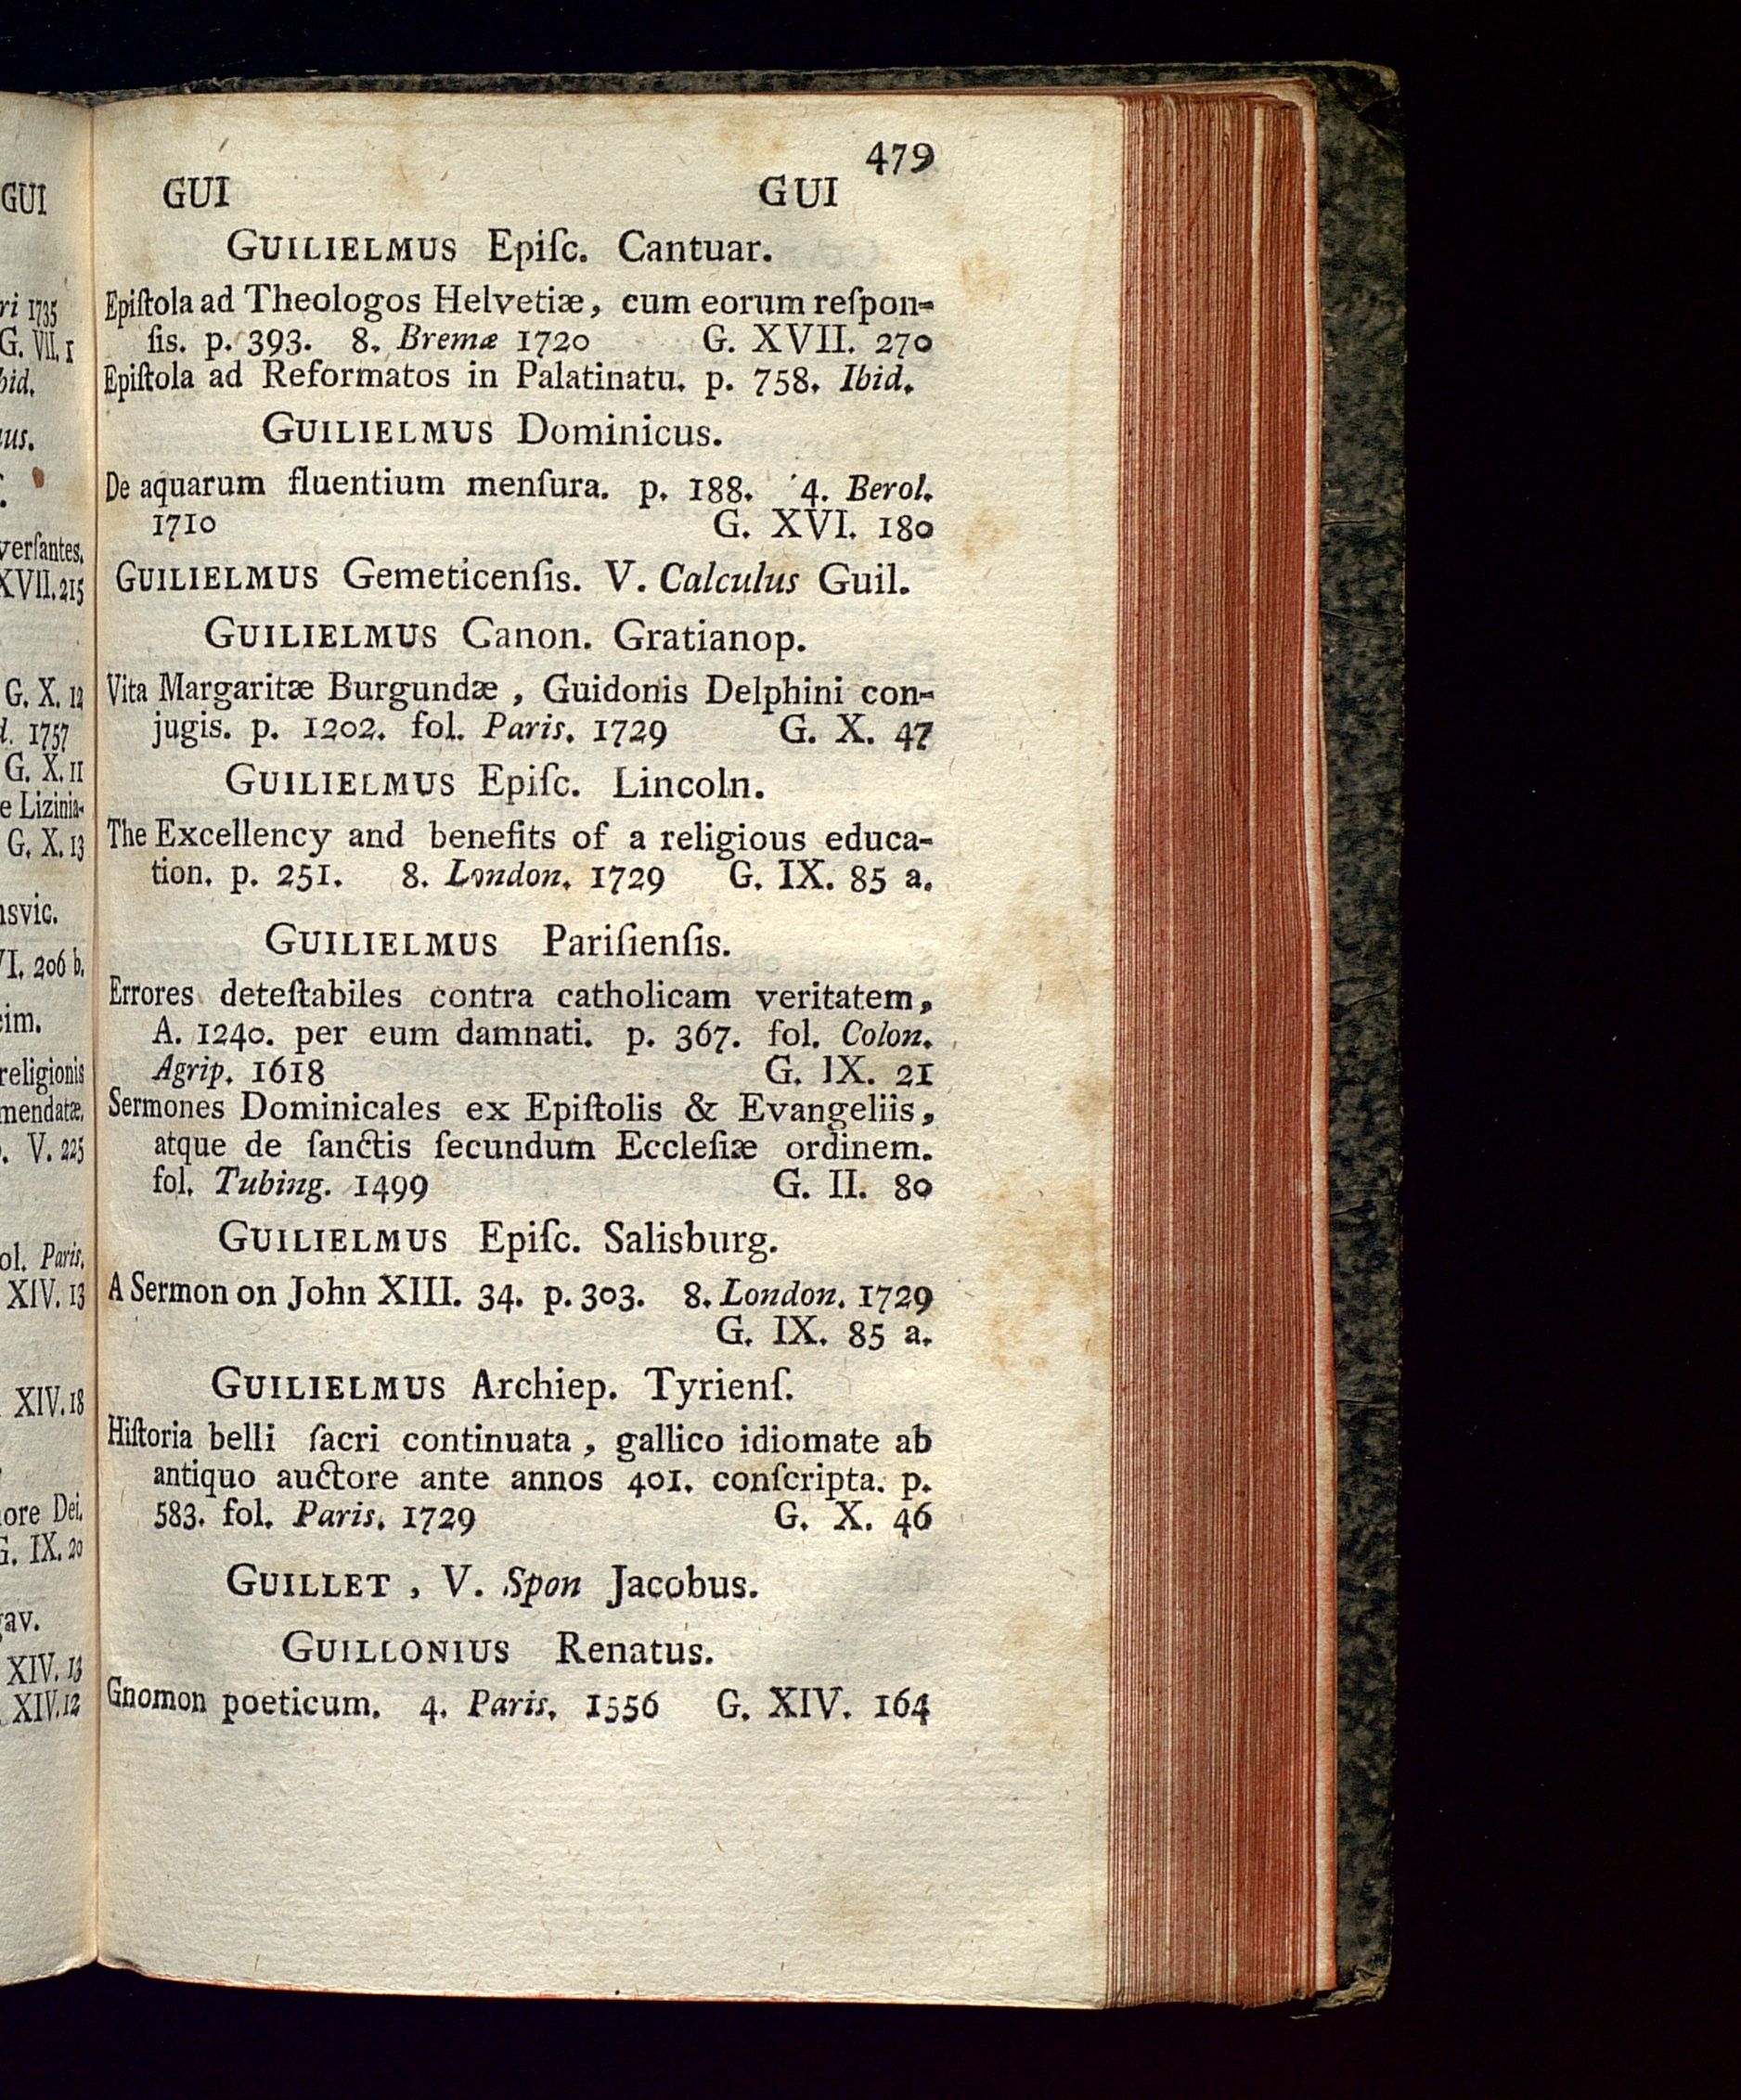 GUI
ri 1735
G. VII. 1
bid.
us.
versantes.
XVII. 215
G. X. 12
1757
G. X. 11
e Lizinia-
G. X. 13
nsvic.
VI. 206 b.
cim.
religionis
mendatæ.
V. 225
ol. Paris.
XIV. 13
XIV. 18
ore Dei.
G. IX. 20
gav.
XIV. 13
XIV. 12
479
GUI GUI
GUILIELMUS Epiſc. Cantuar.
Epiſtola ad Theologos Helvetiæ, cum eorum reſpon-
ſis. p. 393. 8. Bremæ 1720 G. XVII. 270
Epiſtola ad Reformatos in Palatinatu. p. 758. Ibid.
GUILIELMUS Dominicus.
De aquarum fluentium menſura. p. 188. 4. Berol.
1710 G. XVI. 180
GUILIELMUS Gemeticenſis. V. Calculus Guil.
GUILIELMUS Canon. Gratianop.
Vita Margaritæ Burgundæ, Guidonis Delphini con-
jugis. p. 1202. fol. Paris. 1729 G. X. 47
GUILIELMUS Epiſc. Lincoln.
The Excellency and benefits of a religious educa-
tion. p. 251. 8. London. 1729 G. IX. 85 a.
GUILIELMUS Pariſienſis.
Errores deteſtabiles contra catholicam veritatem,
A. 1240. per eum damnati. p. 367. fol. Colon.
Agrip. 1618 G. IX. 21
Sermones Dominicales ex Epiſtolis & Evangeliis,
atque de ſanctis ſecundum Eccleſiæ ordinem.
fol. Tubing. 1499 G. II. 80
GUILIELMUS Epiſc. Salisburg.
A Sermon on John XIII. 34. p. 303. 8. London. 1729
G. IX. 85 a.
GUILIELMUS Archiep. Tyrienſ.
Hiſtoria belli ſacri continuata, gallico idiomate ab
antiquo auctore ante annos 401. conſcripta. p.
583. fol. Paris. 1729 G. X. 46
GUILLET, V. Spon Jacobus.
GUILLONIUS Renatus.
Gnomon poeticum. 4. Paris. 1556 G. XIV. 164